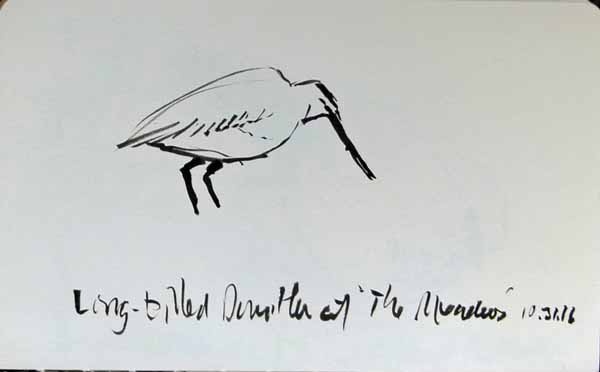 Long-billed Dowitcher at 'The Meadows' 10.31.16